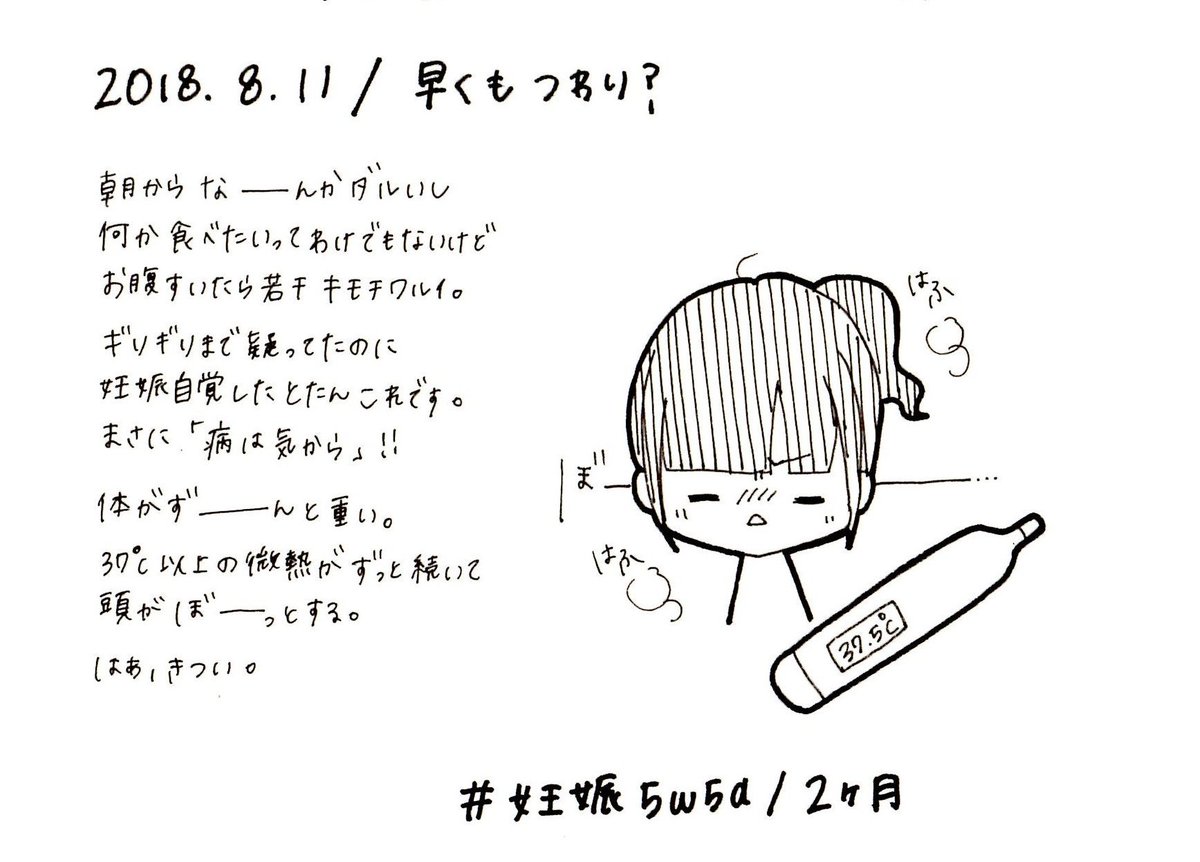 2018. 8. 11 / 早くもつわり?
朝からな――んかダルいし
何か食べたいってわけでもないけど
お腹すいたら若干キモチワルイ。
ギリギリまで疑ってたのに
妊娠自覚したとたんこれです。
まさに「病は気から」!!
体がず――んと重い。
37℃以上の微熱がずっと続いて
頭がぼ――っとする。
はぁ,きつい。
はふ
ぼ――...
はふ
37.5℃
#妊娠5w5d/2ヶ月